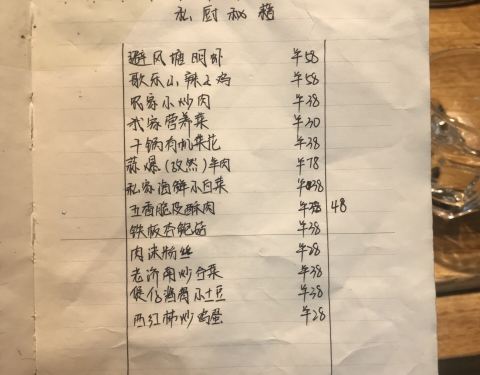 私厨秘籍
避风塘明虾 ¥58
歌乐山辣子鸡 ¥58
农家小炒肉 ¥38
农家营养菜 ¥30
干锅有机菜花 ¥38
蒜爆(孜然)羊肉 ¥78
私家海鲜小白菜 ¥38
五香脆皮酥肉 48
铁板杏鲍菇 ¥38
肉沫粉丝 ¥28
老济南炒合菜 ¥38
傻仔酱香小土豆 ¥28
西红柿炒鸡蛋 ¥28